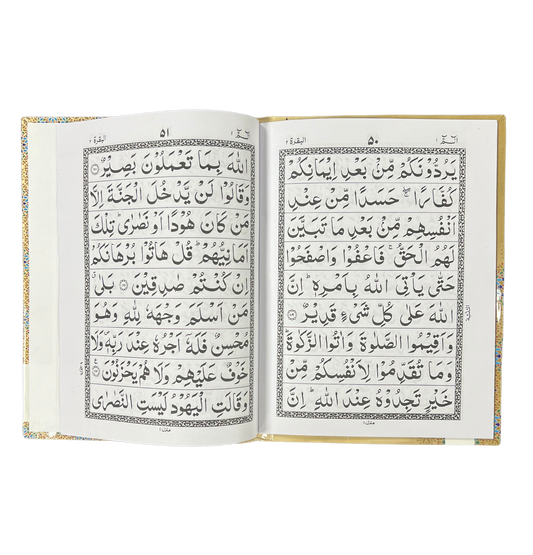 الٓمّٓ ١
٥٠
البقرة ٢
يَرُدُّوْنَكُمْ مِّنْۢ بَعْدِ اِيْمَانِكُمْ
كُفَّارًا ۖۚ حَسَدًا مِّنْ عِنْدِ
اَنْفُسِهِمْ مِّنْۢ بَعْدِ مَا تَبَيَّنَ
لَهُمُ الْحَقُّ ۚ فَاعْفُوْا وَاصْفَحُوْا
حَتّٰى يَاْتِىَ اللّٰهُ بِاَمْرِهٖ ؕ اِنَّ
اللّٰهَ عَلٰى كُلِّ شَىْءٍ قَدِيْرٌ ﴿١٠٩﴾
وَاَقِيْمُوا الصَّلٰوةَ وَاٰتُوا الزَّكٰوةَ ؕ
وَمَا تُقَدِّمُوْا لِاَنْفُسِكُمْ مِّنْ
خَيْرٍ تَجِدُوْهُ عِنْدَ اللّٰهِ ؕ اِنَّ
منزل ١
الٓمّٓ ١
٥١
البقرة ٢
اللّٰهَ بِمَا تَعْمَلُوْنَ بَصِيْرٌ ﴿١١٠﴾
وَقَالُوْا لَنْ يَّدْخُلَ الْجَنَّةَ اِلَّا
مَنْ كَانَ هُوْدًا اَوْ نَصٰرٰى ؕ تِلْكَ
اَمَانِيُّهُمْ ؕ قُلْ هَاتُوْا بُرْهَانَكُمْ
اِنْ كُنْتُمْ صٰدِقِيْنَ ﴿١١١﴾ بَلٰى ۗ
مَنْ اَسْلَمَ وَجْهَهٗ لِلّٰهِ وَهُوَ
مُحْسِنٌ فَلَهٗۤ اَجْرُهٗ عِنْدَ رَبِّهٖ ۪ وَلَا
خَوْفٌ عَلَيْهِمْ وَلَا هُمْ يَحْزَنُوْنَ ﴿١١٢﴾
وَقَالَتِ الْيَهُوْدُ لَيْسَتِ النَّصٰرٰى
منزل ١